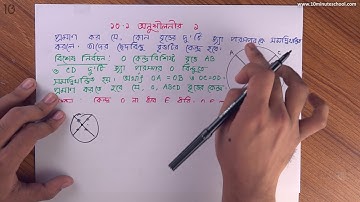 10
www.10minuteschool.com
১০.১ অনুশীলনীর ১
প্রমাণ কর যে, কোন বৃত্তের দু'টি জ্যা পরস্পরকে সমদ্বিখন্ডিত
করলে, তাদের ছেদবিন্দু বৃত্তটির কেন্দ্র হবে।
বিশেষ নির্বচন: O কেন্দ্রবিশিষ্ট বৃত্তে AB
ও CD দু'টি জ্যা পরস্পর O বিন্দুতে
সমদ্বিখন্ডিত হয়। অর্থাৎ OA = OB ও OC=OD
প্রমাণ করতে হবে যে, O, ABCD বৃত্তের কেন্দ্র
কেন্দ্র O না হয়ে E
A